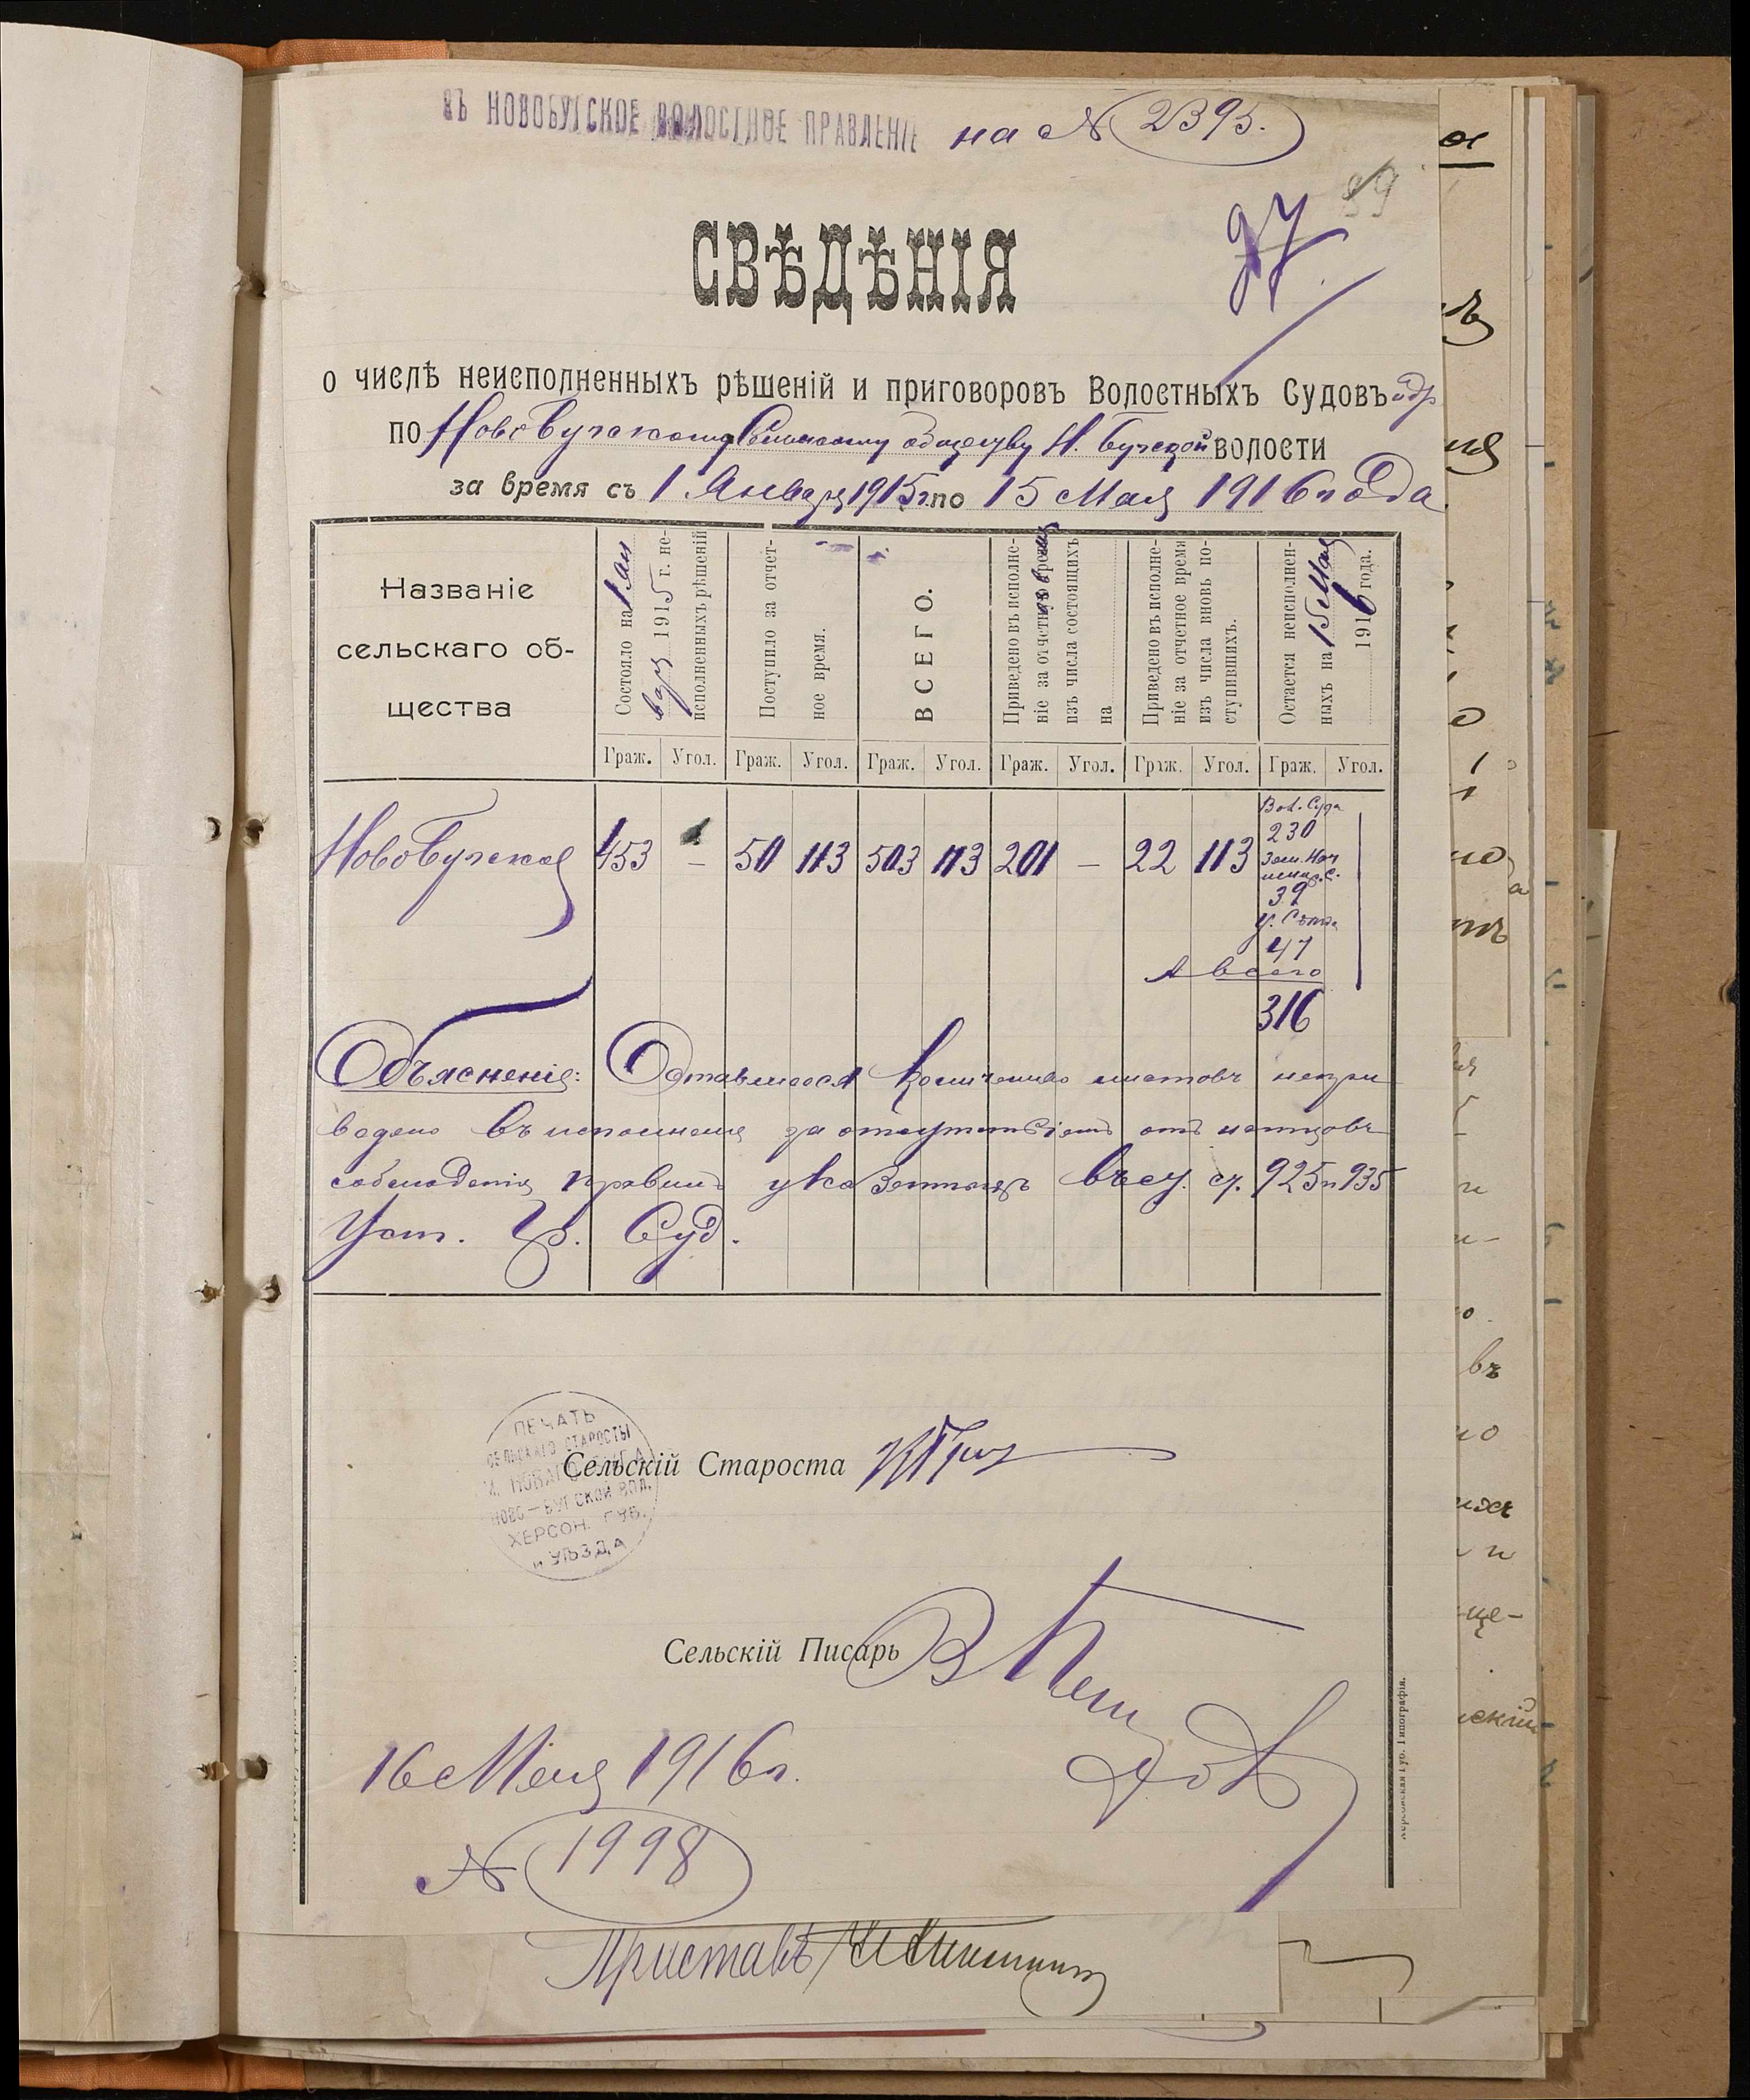 ВЪ НОВОБУГСКОЕ ВОЛОСТНОЕ ПРАВЛЕНІЕ на № 2395.
89
97.
СВѢДѢНІЯ
о числѣ неисполненныхъ рѣшеній и приговоровъ Волостныхъ Судовъ и др
по Ново Бугскому Сельскому обществу Н. Бугской волости
за время съ 1 Января 1915 г. по 15 Мая 1916 года
Названіе
сельскаго об-
щества
Состояло на 1 Ян
варя 1915 г. не-
исполненныхъ рѣшеній
Поступило за отчет-
ное время.
ВСЕГО.
Приведено въ исполне-
ніе за отчетное время
изъ числа состоящихъ
на
Приведено въ исполне-
ніе за отчетное время
изъ числа вновь по-
ступившихъ.
Остается неисполнен-
ныхъ на 15 Мая
1916 года.
Граж. Угол. Граж. Угол. Граж. Угол. Граж. Угол. Граж. Угол. Граж. Угол.
НовоБугское 453 - 50 113 503 113 201 - 22 113
Вол. Суда
230
Зем. Нач
39
У. Съѣзда
47
А всего
316
Объясненіе: Оставшееся количество листовъ непри
ведено въ исполненіе за отсутствіемъ отъ истцовъ
соблюденія правилъ указанныхъ въ ст. ст. 925 и 935
Уст. Гр. Суд.
ПЕЧАТЬ
СЕЛЬСКАГО СТАРОСТЫ
М. НОВАГО БУГА
НОВО-БУГСКОЙ ВОЛ.
ХЕРСОН. ГУБ.
и УѢЗДА
Сельскій Староста
Сельскій Писарь В
16 Мая 1916 г.
№ 1998
Херсонская Губ. Типографія.
Приставъ